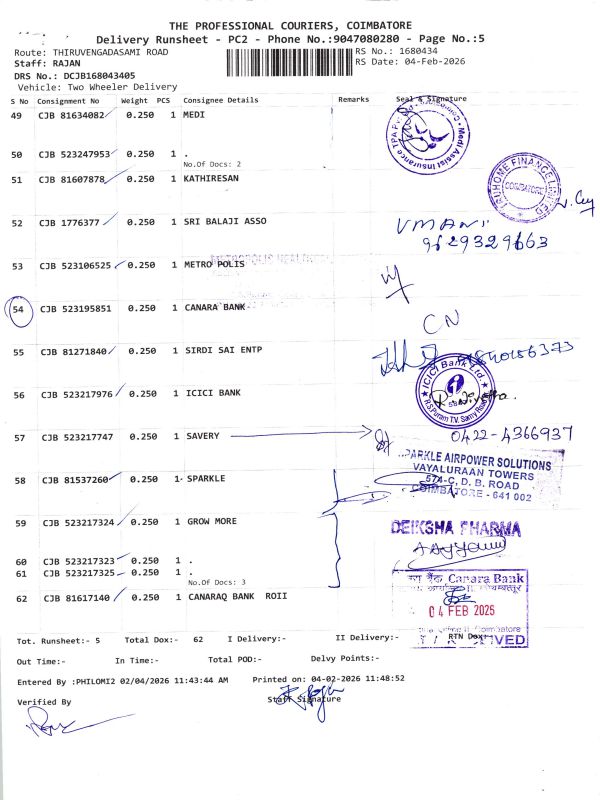 THE PROFESSIONAL COURIERS, COIMBATORE
Delivery Runsheet - PC2 - Phone No.:9047080280 - Page No.:5
Route: THIRUVENGADASAMI ROAD
RS No.: 1680434
Staff: RAJAN
RS Date: 04-Feb-2026
DRS No.: DCJB168043405
Vehicle: Two Wheeler Delivery
S No Consignment No Weight PCS Consignee Details Remarks Seal & Signature
49 CJB 81634082 0.250 1 MEDI
Medi Assist Insurance TPA
50 CJB 523247953 0.250 1 .
No.Of Docs: 2
51 CJB 81607878 0.250 1 KATHIRESAN
HOME FINANCE LIMITED
COIMBATORE
52 CJB 1776377 0.250 1 SRI BALAJI ASSO
UMANI
9629329663
53 CJB 523106525 0.250 1 METRO POLIS
METROPOLIS HEALTHCARE
54 CJB 523195851 0.250 1 CANARA BANK
CN
55 CJB 81271840 0.250 1 SIRDI SAI ENTP
56 CJB 523217976 0.250 1 ICICI BANK
ICICI Bank Ltd
R.S.Puram T.V. Samy Road
57 CJB 523217747 0.250 1 SAVERY
0422-4366937
58 CJB 81537260 0.250 1 SPARKLE
SPARKLE AIRPOWER SOLUTIONS
VAYALURAAN TOWERS
574-C, D. B. ROAD
COIMBATORE - 641 002
59 CJB 523217324 0.250 1 GROW MORE
DEIKSHA PHARMA
60 CJB 523217323 0.250 1 .
61 CJB 523217325 0.250 1 .
No.Of Docs: 3
62 CJB 81617140 0.250 1 CANARAQ BANK ROII
Canara Bank
04 FEB 2025
Tot. Runsheet:- 5 Total Dox:- 62 I Delivery:- II Delivery:- RTN Dox:-
Out Time:- In Time:- Total POD:- Delvy Points:-
Entered By :PHILOMI2 02/04/2026 11:43:44 AM Printed on: 04-02-2026 11:48:52
Verified By Staff Signature